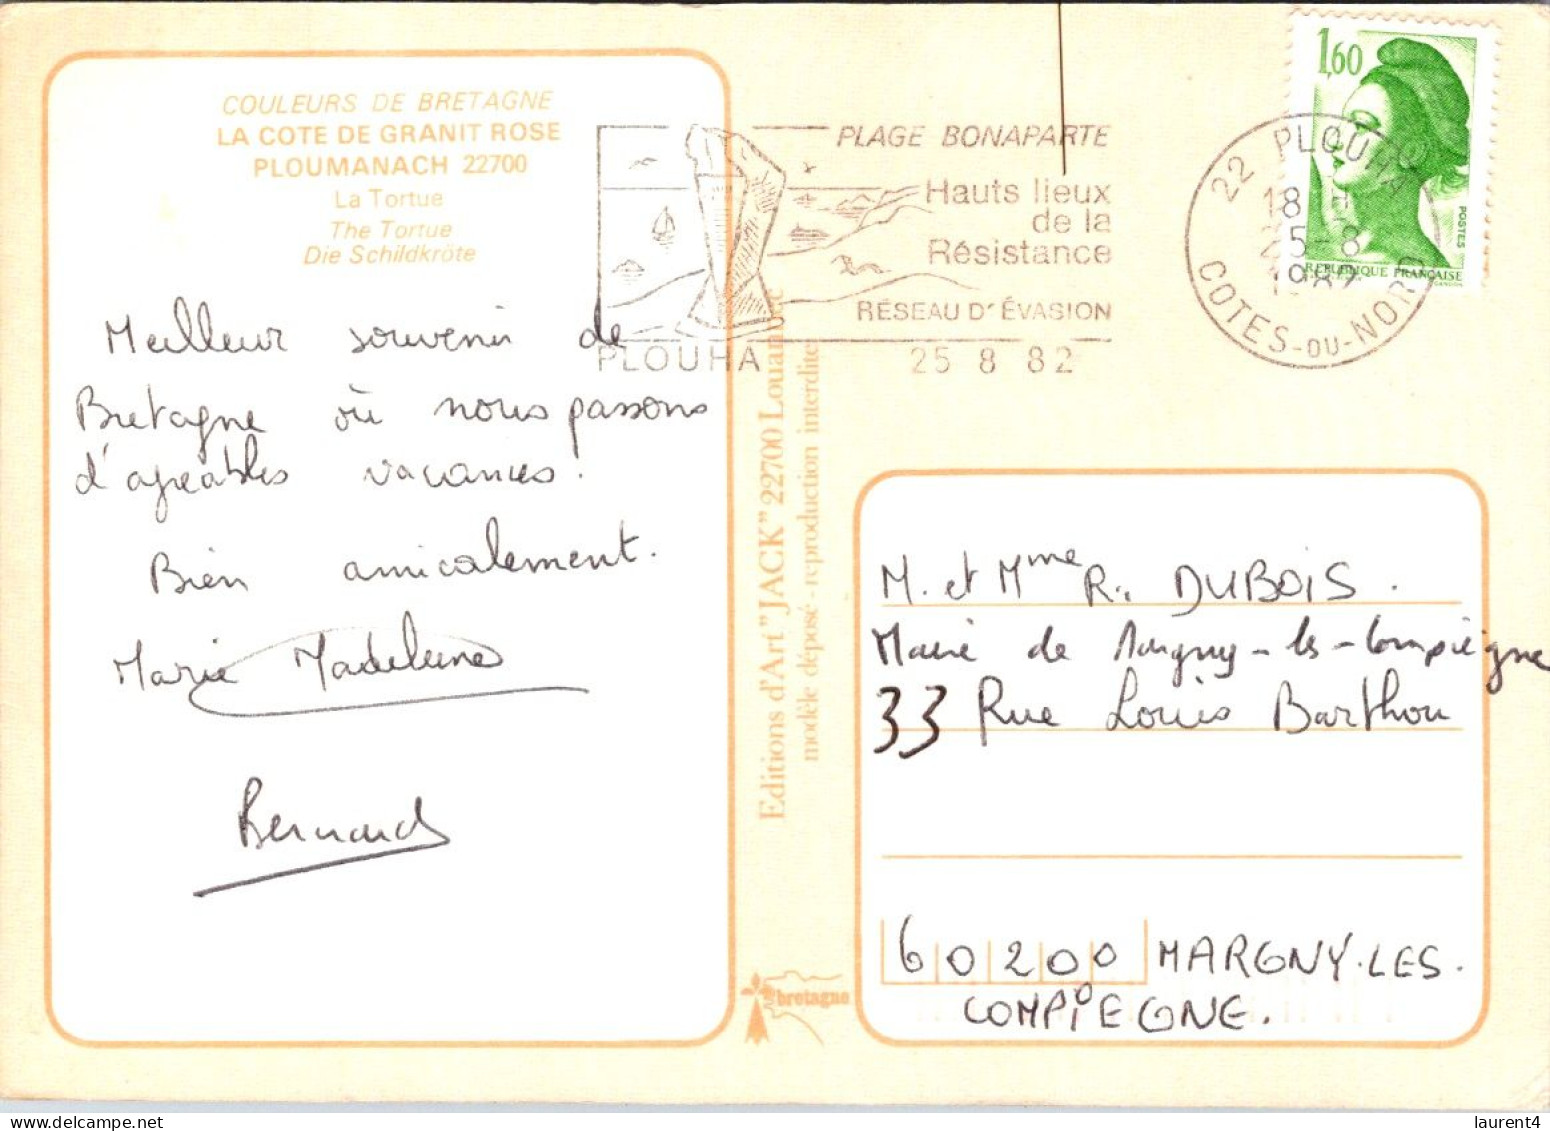 COULEURS DE BRETAGNE
LA COTE DE GRANIT ROSE
PLOUMANACH 22700
La Tortue
The Tortue
Die Schildkröte
Meilleur souvenir de
Bretagne où nous passons
d'agréables vacances !
Bien amicalement.
Marie Madeleine
Bernard
PLAGE BONAPARTE
Hauts lieux
de la
Résistance
RESEAU D'ÉVASION
PLOUHA 25 8 82
22 PLOUHA
18 H
25-8
1982
COTES-DU-NORD
1,60
POSTES
REPUBLIQUE FRANÇAISE
GANDON
Editions d'Art "JACK" 22700 Louannec
modèle déposé - reproduction interdite
bretagne
M. et Mme R. DUBOIS.
Mairie de Margny-les-Compiègne
33 Rue Louis Barthou
60200 MARGNY-LES-
COMPIEGNE.
laurent4